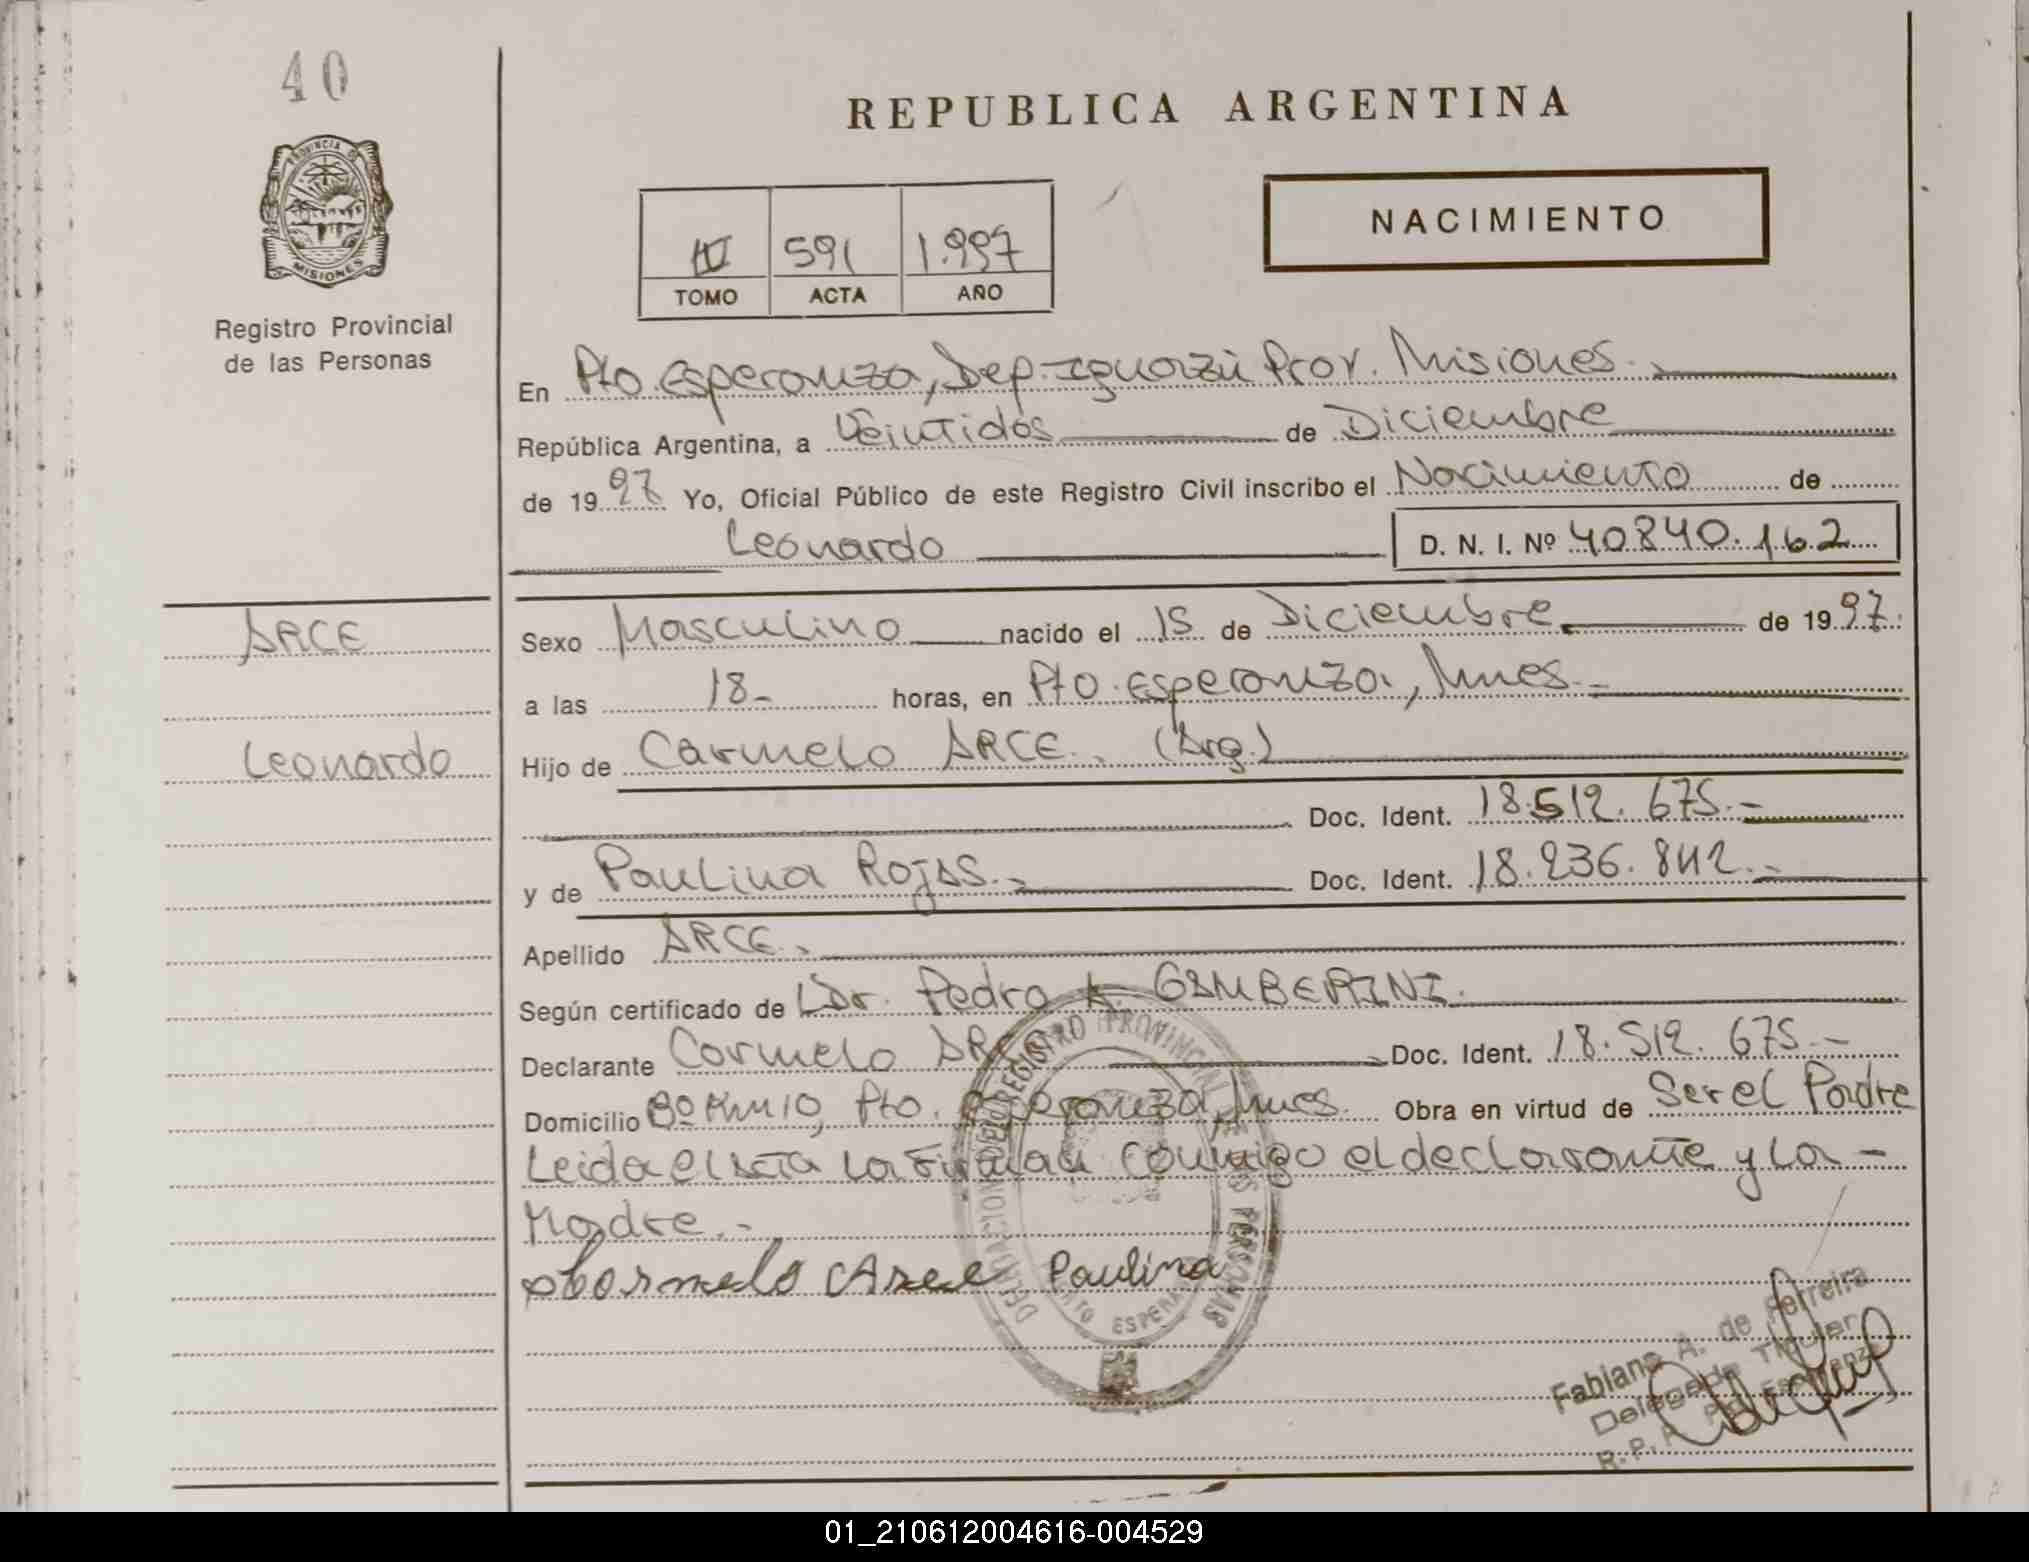 40
REPUBLICA ARGENTINA
NACIMIENTO
591 1.997
TOMO ACTA AÑO
PROVINCIA DE
MISIONES
Registro Provincial
de las Personas
En Pto. Esperanza, Dep. Iguazú Prov. Misiones.
República Argentina, a Veintidos de Diciembre
de 1997 Yo, Oficial Público de este Registro Civil inscribo el Nacimiento de
Leonardo D. N. I. Nº 40840.162
ARCE
Leonardo
Sexo Masculino nacido el 15 de Diciembre de 1997.
a las 18- horas, en Pto. Esperanza, Mnes.-
Hijo de Carmelo ARCE. (Arg.)
Doc. Ident. 18.512.675.-
y de Paulina Rojas.- Doc. Ident. 18.236.842.-
Apellido ARCE.
Según certificado de Dr. Pedro A. GAMBERINI.
Declarante Carmelo ARCE Doc. Ident. 18.512.675.-
Domicilio Bº Km 10, Pto. Esperanza, Mnes. Obra en virtud de Ser el Padre
Leida el Acta la Firman conmigo el declarante y la -
Madre.-
Carmelo Arce Paulina
DELEGACION DEL REGISTRO PROVINCIAL DE LAS PERSONAS
ESPERANZA
Fabiana A. de Ferreira
Delegada Titular
R.P.P. Pto. Esperanza
01_210612004616-004529